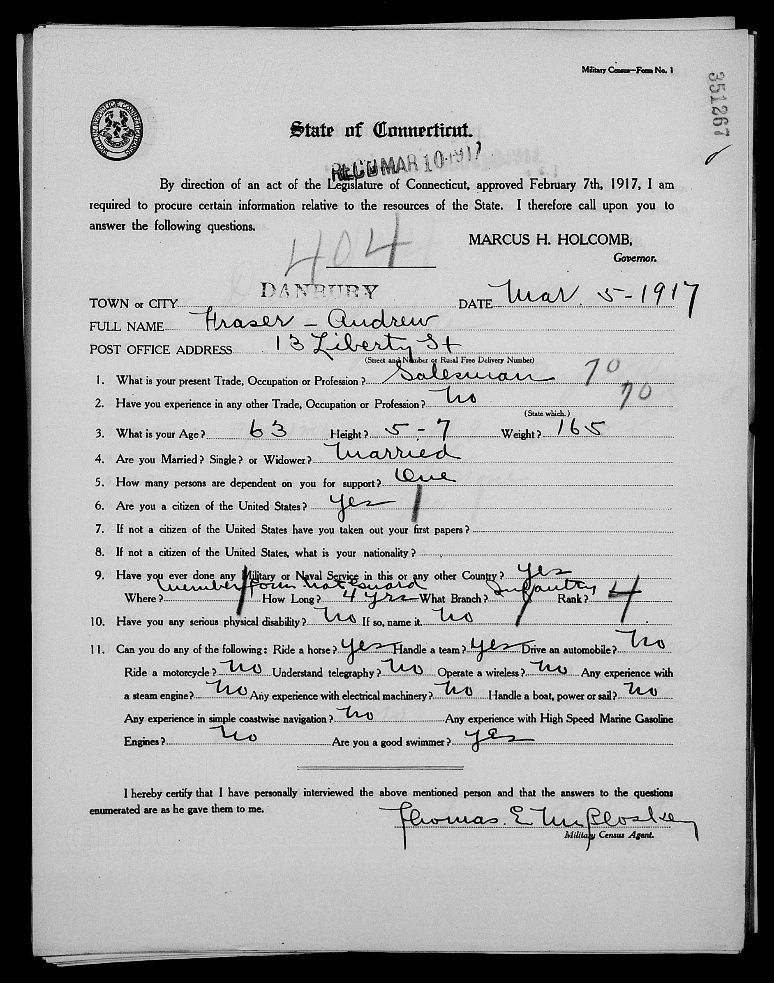 Military Census—Form No. 1
351267
State of Connecticut.
REC'D MAR 10 1917
By direction of an act of the Legislature of Connecticut, approved February 7th, 1917, I am
required to procure certain information relative to the resources of the State. I therefore call upon you to
answer the following questions.
MARCUS H. HOLCOMB,
Governor.
404
TOWN or CITY DANBURY DATE Mar. 5-1917
FULL NAME Fraser - Andrew
POST OFFICE ADDRESS 13 Liberty St
(Street and Number or Rural Free Delivery Number)
1. What is your present Trade, Occupation or Profession? Salesman 70
2. Have you experience in any other Trade, Occupation or Profession? No 70
(State which.)
3. What is your Age? 63 Height? 5-7 Weight? 165
4. Are you Married? Single? or Widower? Married
5. How many persons are dependent on you for support? One
6. Are you a citizen of the United States? yes
7. If not a citizen of the United States have you taken out your first papers?
8. If not a citizen of the United States, what is your nationality?
9. Have you ever done any Military or Naval Service in this or any other Country? yes
Where? Member Conn. Nat Guard How Long? 4 yrs What Branch? Infantry Rank? 4
10. Have you any serious physical disability? No If so, name it. No
11. Can you do any of the following: Ride a horse? yes Handle a team? yes Drive an automobile? No
Ride a motorcycle? No Understand telegraphy? No Operate a wireless? No Any experience with
a steam engine? No Any experience with electrical machinery? No Handle a boat, power or sail? No
Any experience in simple coastwise navigation? No Any experience with High Speed Marine Gasoline
Engines? No Are you a good swimmer? yes
I hereby certify that I have personally interviewed the above mentioned person and that the answers to the questions
enumerated are as he gave them to me.
Thomas. E McCloskey
Military Census Agent.